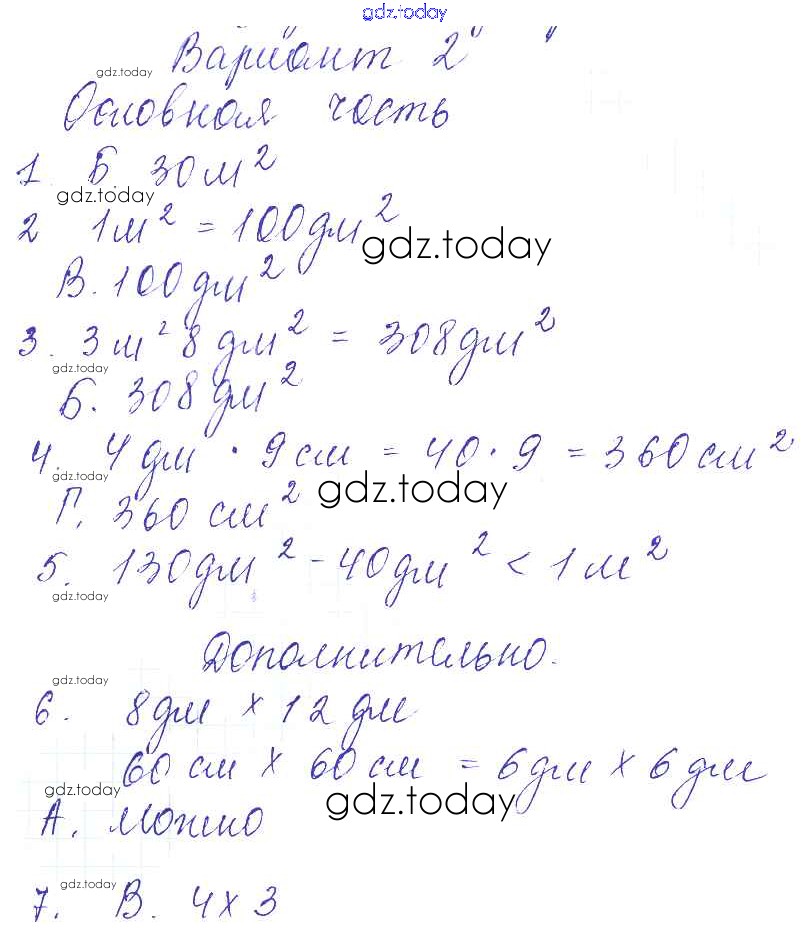 gdz.today
Вариант 2
gdz.today
Основная часть
1. Б. 30 м²
gdz.today
2 1 м² = 100 дм²
gdz.today
В. 100 дм²
3. 3 м² 8 дм² = 308 дм²
gdz.today
Б. 308 дм²
4. 4 дм · 9 см = 40 · 9 = 360 см²
gdz.today
gdz.today
Г. 360 см²
5. 130 дм² - 40 дм² < 1 м²
gdz.today
Дополнительно.
gdz.today
6. 8 дм х 12 дм
60 см х 60 см = 6 дм х 6 дм
gdz.today
gdz.today
А. Можно
gdz.today
7. В. 4 х 3